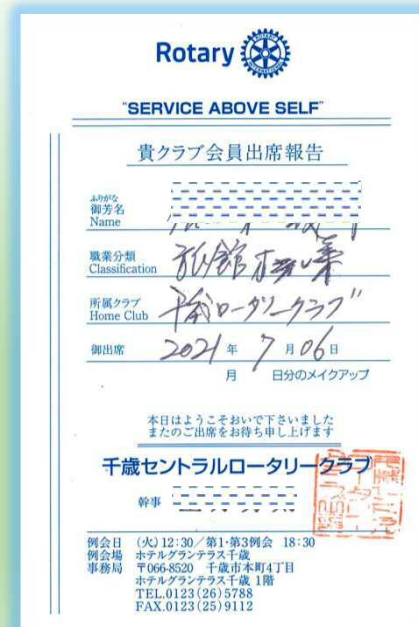 Rotary
"SERVICE ABOVE SELF"
貴クラブ会員出席報告
ふりがな
御芳名
Name
職業分類
Classification 旅館
所属クラブ
Home Club 千歳ロータリークラブ
御出席 2021 年 7 月 06 日
月 日分のメイクアップ
本日はようこそおいで下さいました
またのご出席をお待ち申し上げます
千歳セントラルロータリークラブ
幹事
例会日 (火) 12:30/第1・第3例会 18:30
例会場 ホテルグランテラス千歳
事務局 〒066-8520 千歳市本町4丁目
ホテルグランテラス千歳 1階
TEL.0123(26)5788
FAX.0123(25)9112